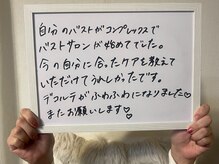 自分のバストがコンプレックスで
バストサロンは始めてでした。
今の自分に合ったケアも教えて
いただけてうれしかったです。
デコルテがふわふわになりました♡
またお願いします♡